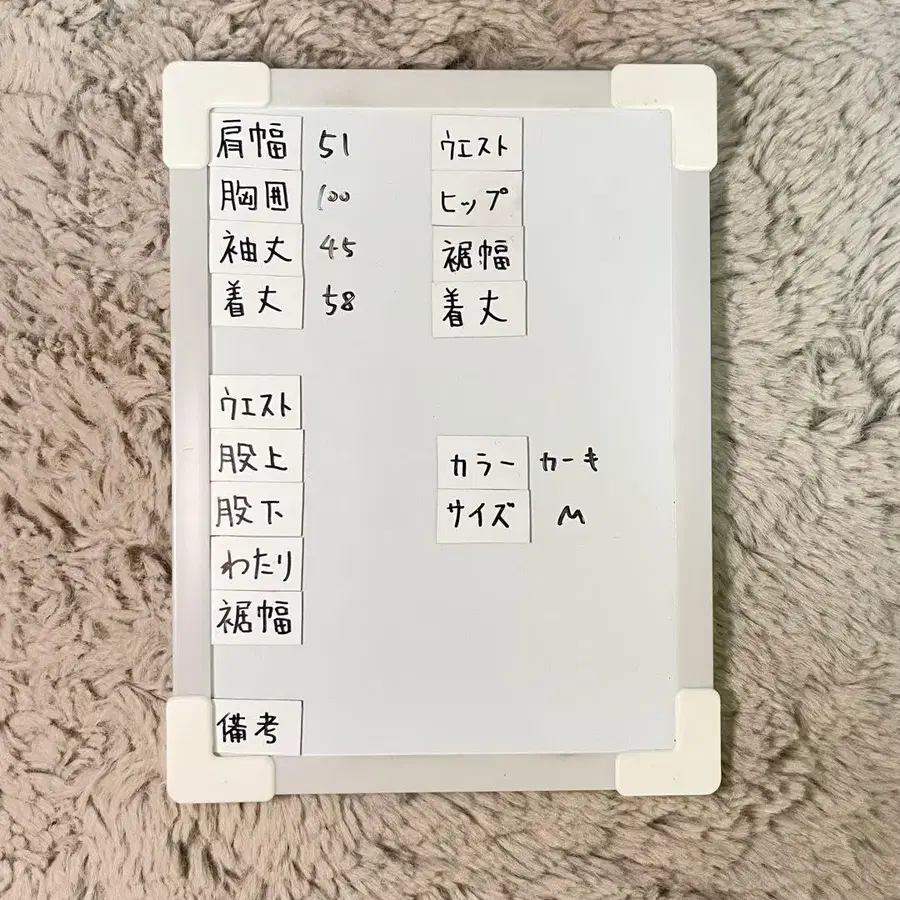 肩幅 51
胸囲 100
袖丈 45
着丈 58
ウエスト
ヒップ
裾幅
着丈
ウエスト
股上
股下
わたり
裾幅
カラー カーキ
サイズ M
備考